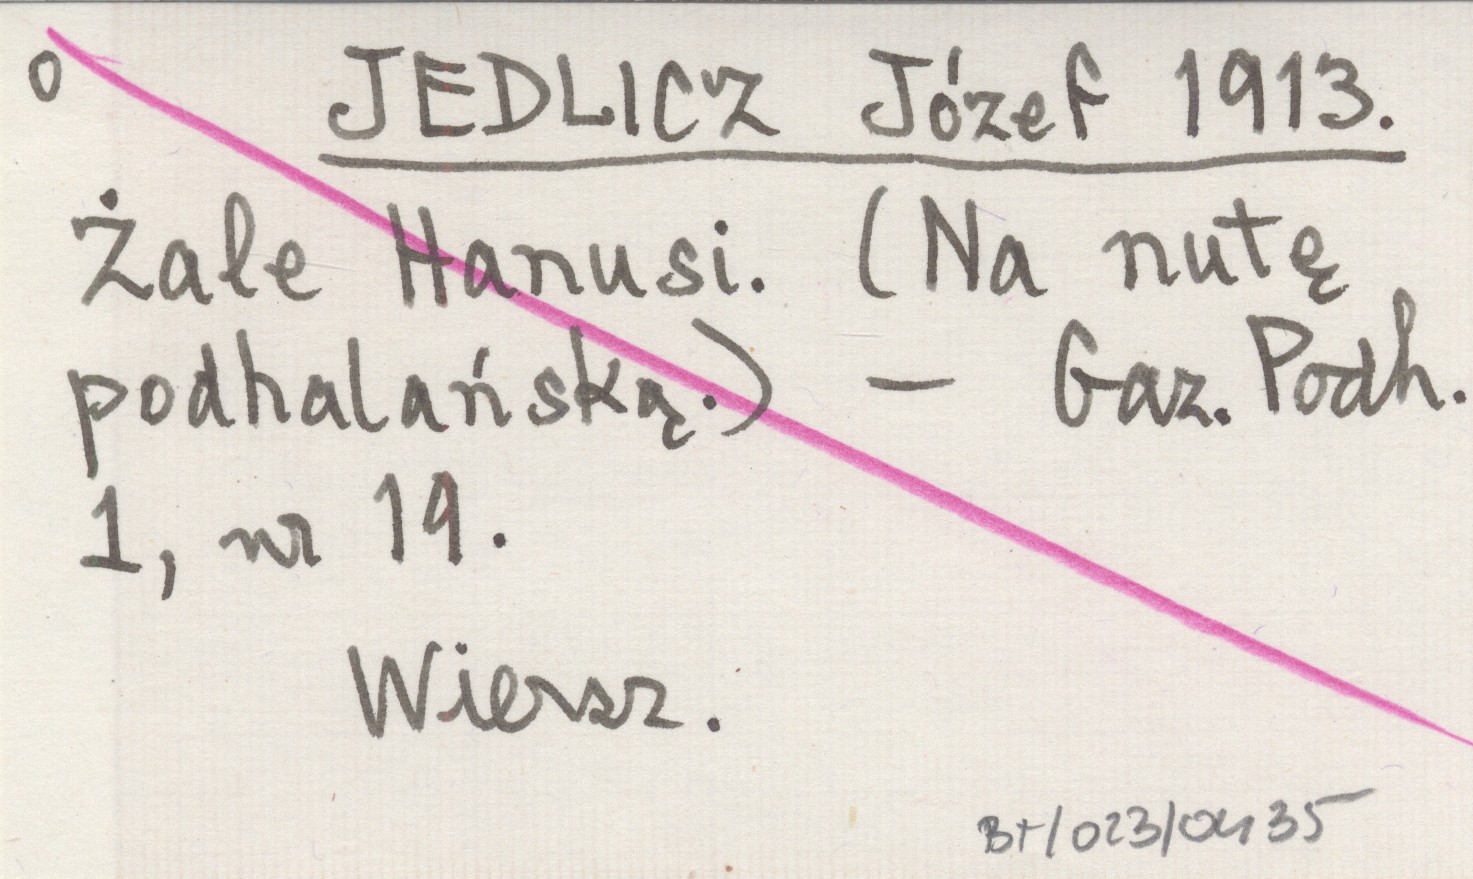 o JEDLICZ Józef 1913.
Żale Hanusi. (Na nutę
podhalańską.) — Gaz. Podh.
1, nr 19.
Wiersz.
BT/023/0435